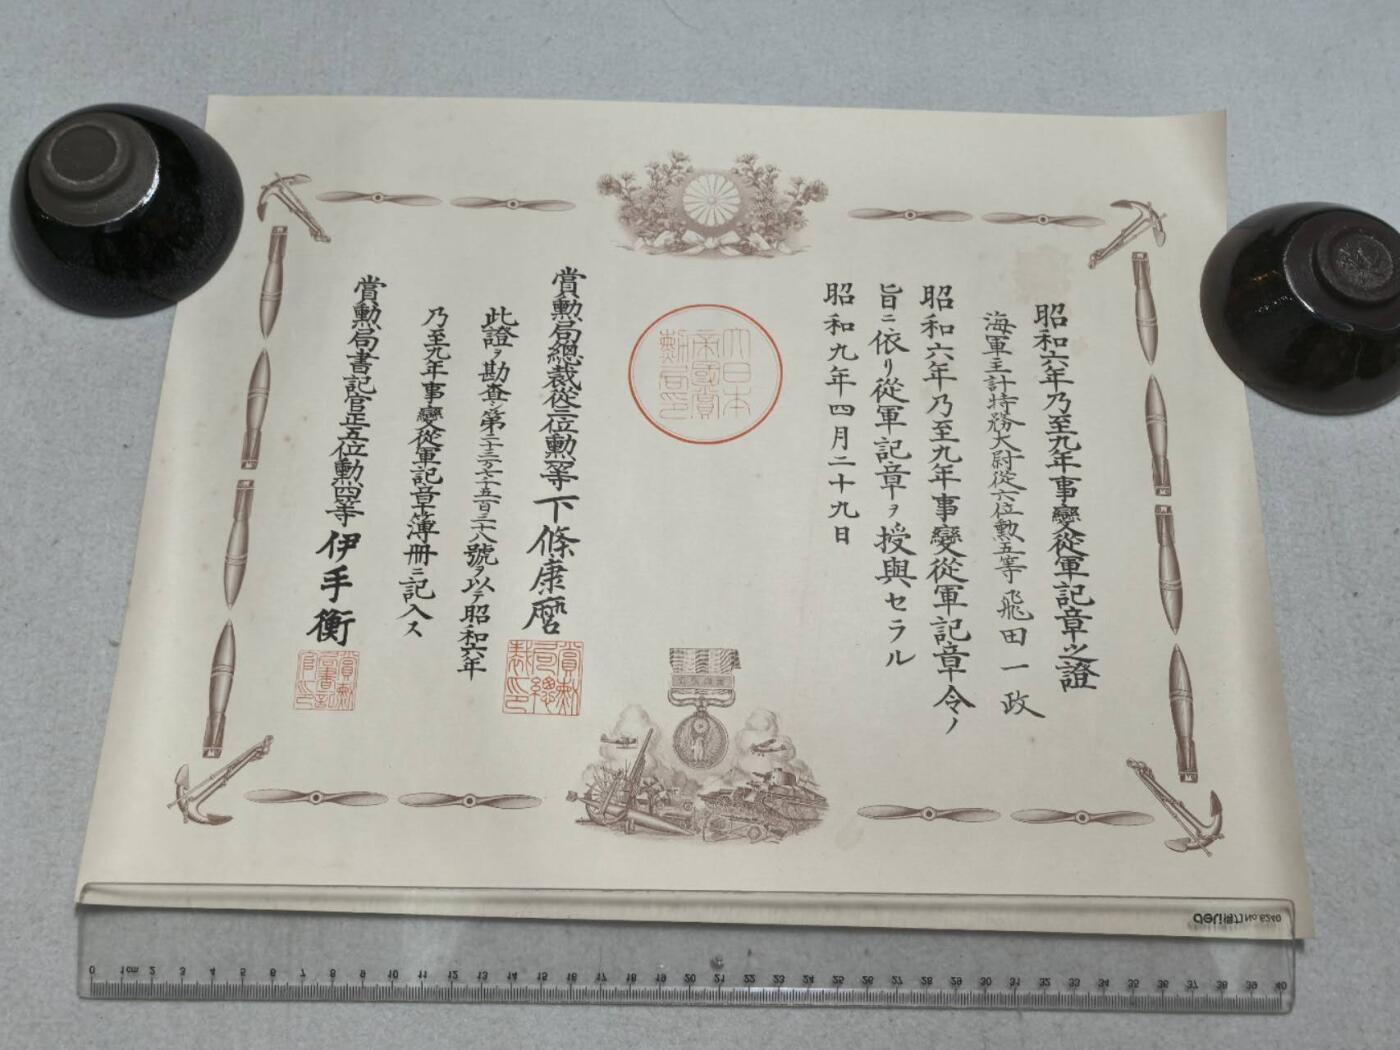 昭和六年乃至九年事變從軍記章之證
海軍主計特務大尉從六位勲五等飛田一政
昭和六年乃至九年事變從軍記章令ノ
旨ニ依リ從軍記章ヲ授與セラル
昭和九年四月二十九日
大日本
帝國賞
勲局印
賞勲局總裁從三位勲二等下條康麿
此證ヲ勘査シ第二十三万七千五百三十八號ヲ以テ昭和六年
乃至九年事變從軍記章簿冊ニ記入ス
賞勲局書記官正五位勲四等伊手衡
賞勲
局總
裁印
賞勲
局書記
官印
deli得力 No.6240
0 1cm 2 3 4 5 6 7 8 9 10 11 12 13 14 15 16 17 18 19 20 21 22 23 24 25 26 27 28 29 30 31 32 33 34 35 36 37 38 39 40